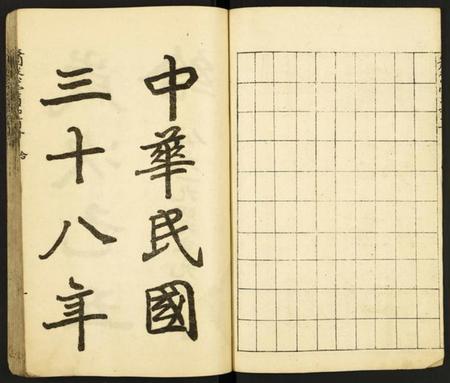 中華民國
三十八年